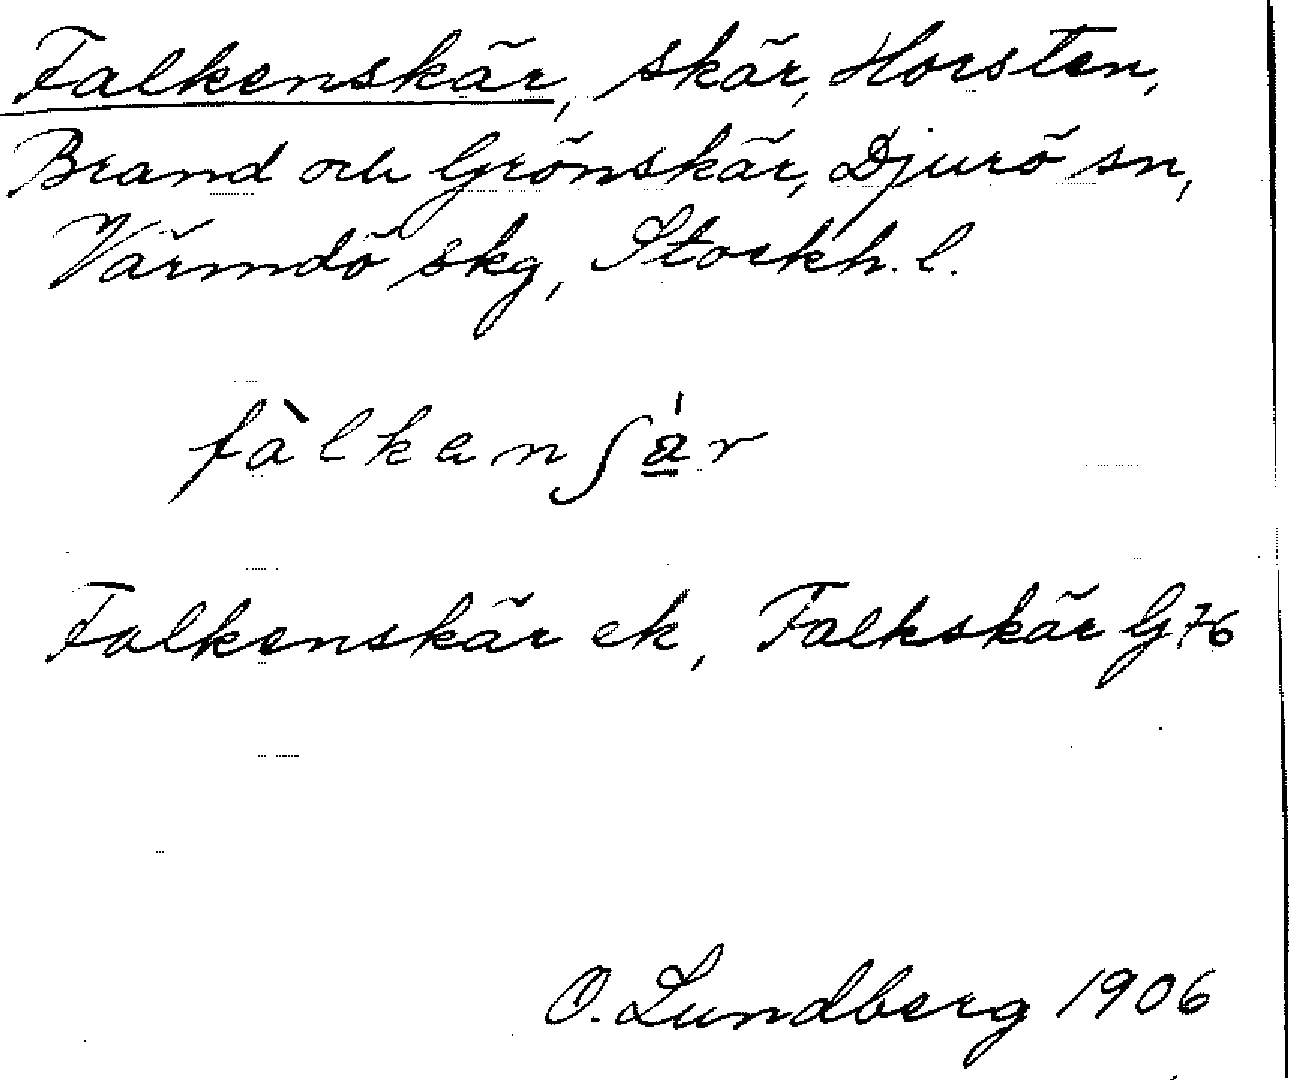 Falkenskär, skär, Horsten,
Brand och Grönskär, Djurö sn,
Värmdö skg, Stockh. l.
fàlkenʃä̀r
Falkenskär ek, Falkskär G 76
O. Lundberg 1906